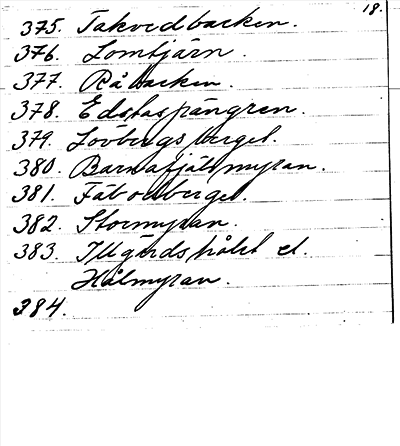 18.
375. Takvedbacken.
376. Lomtjärn.
377. Råbacken.
378. Edstaspångren.
379. Lövbergsberget.
380. Barnafjälsmyran.
381. Fäbodberget.
382. Stormyran.
383. Illgårdshålet el.
Hålmyran.
384.